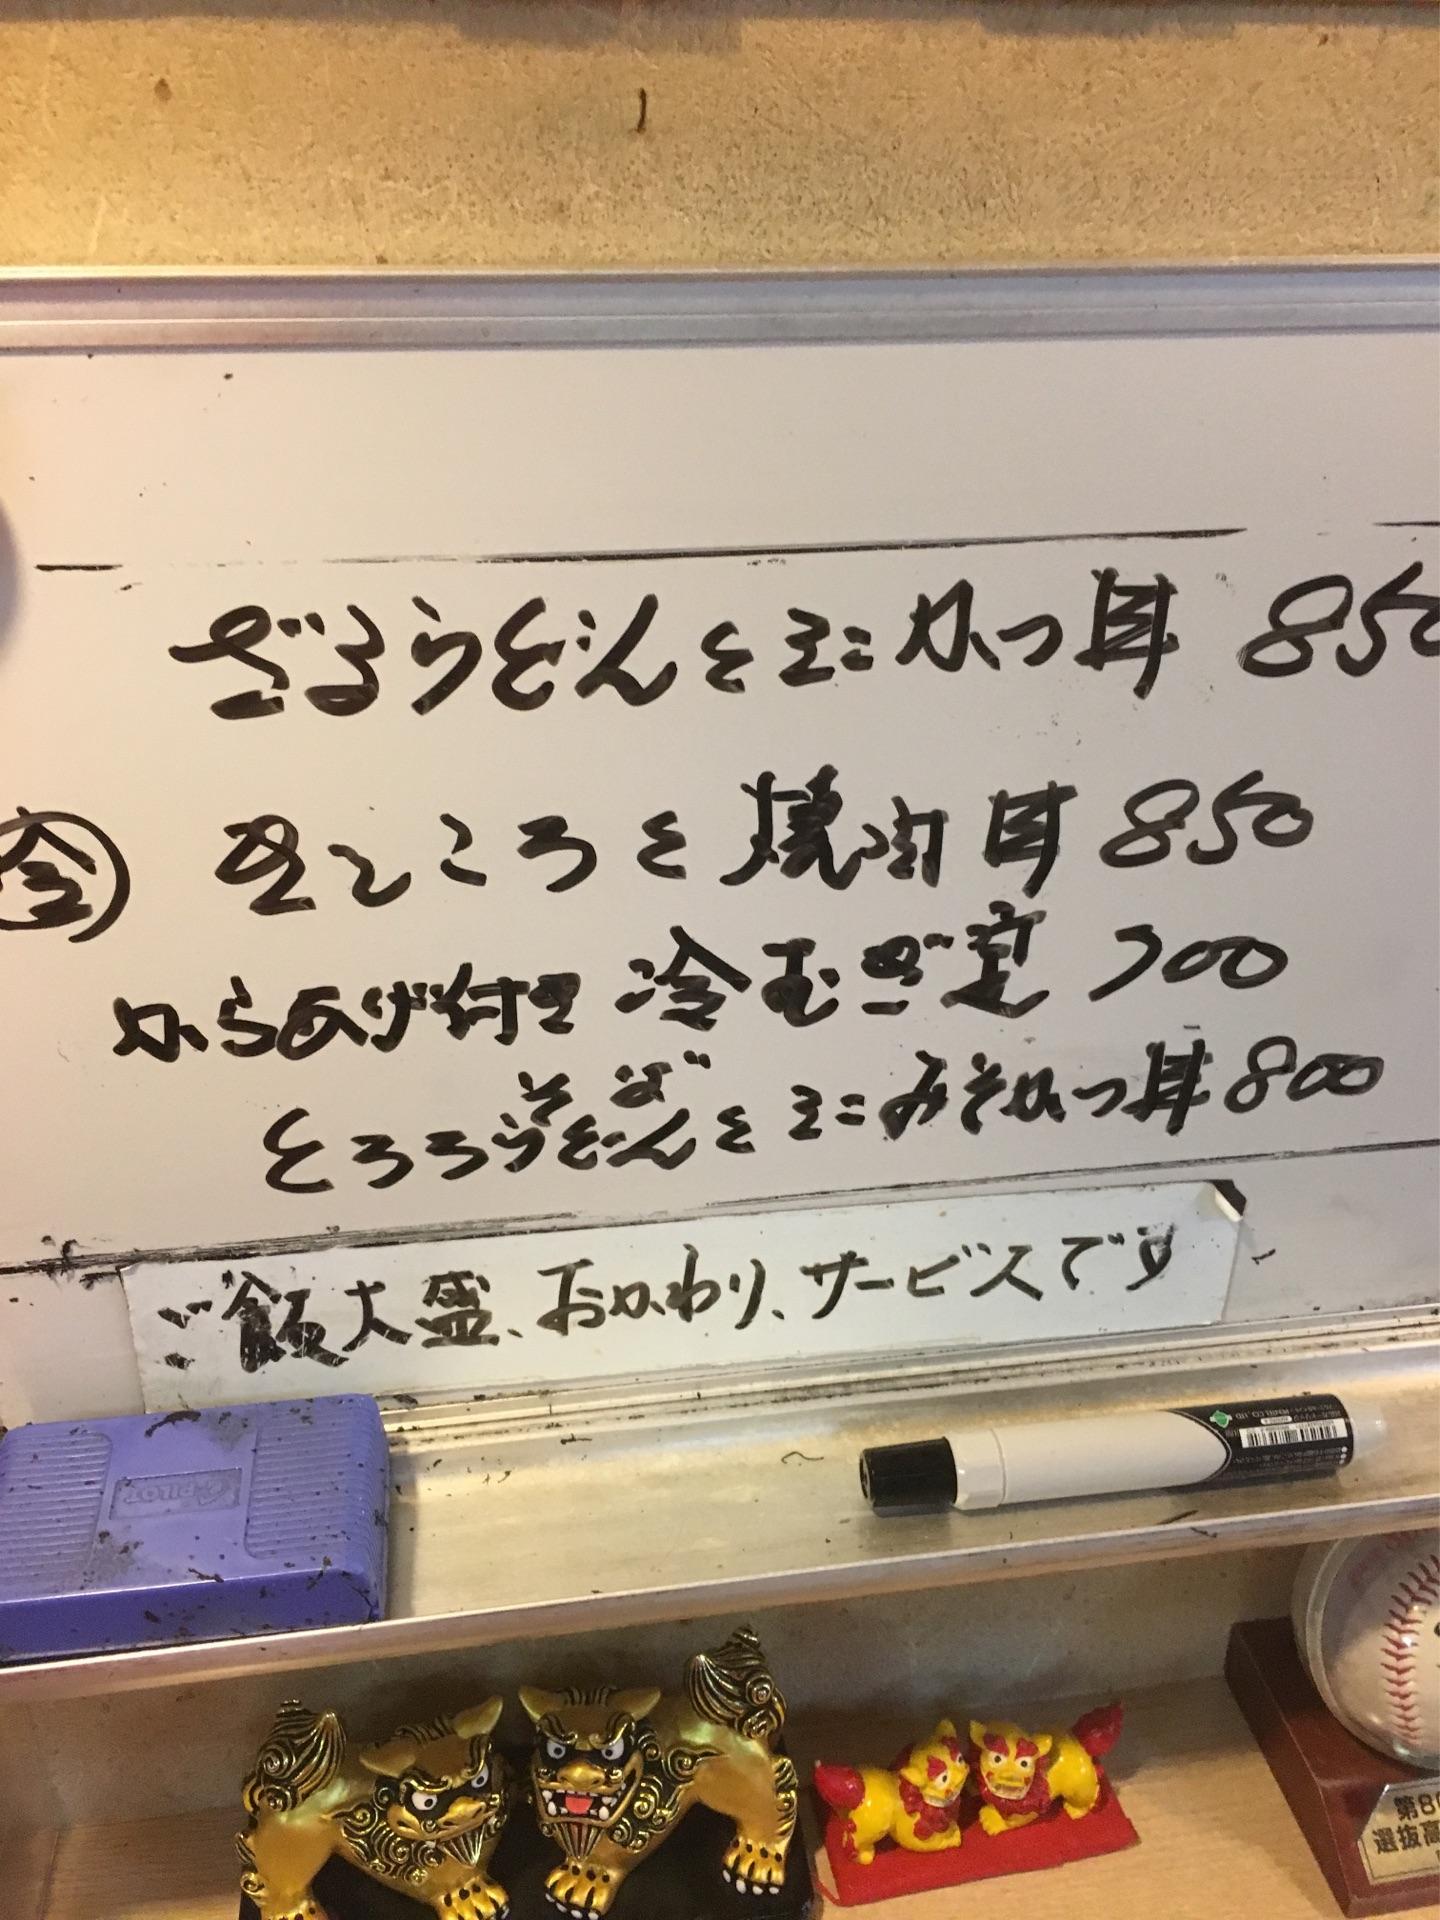 ざるうどんとミニかつ丼 850
金 きしころと焼肉丼 850
からあげ付き冷むぎ定 700
そば
とろろうどんとミニみそかつ丼 800
ご飯大盛、おかわり、サービスです
PILOT
第80
選抜高